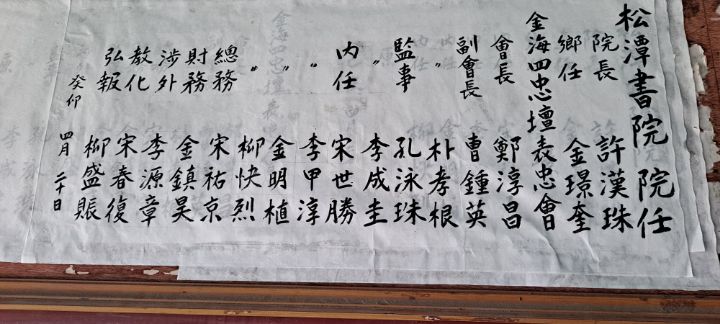 松潭書院院任
院長 許漢珠
鄕任 金璟奎
金海四忠壇表忠會
會長 鄭淳昌
副會長 曺鍾英
〃 朴孝根
監事 孔泳珠
〃 李成圭
内任 宋世勝
〃 李甲淳
〃 金明植
〃 柳快烈
總務 宋祐京
財務 金鎮昊
涉外 李源章
敎化 宋春復
弘報 柳盛賬
癸卯 四月 二十日